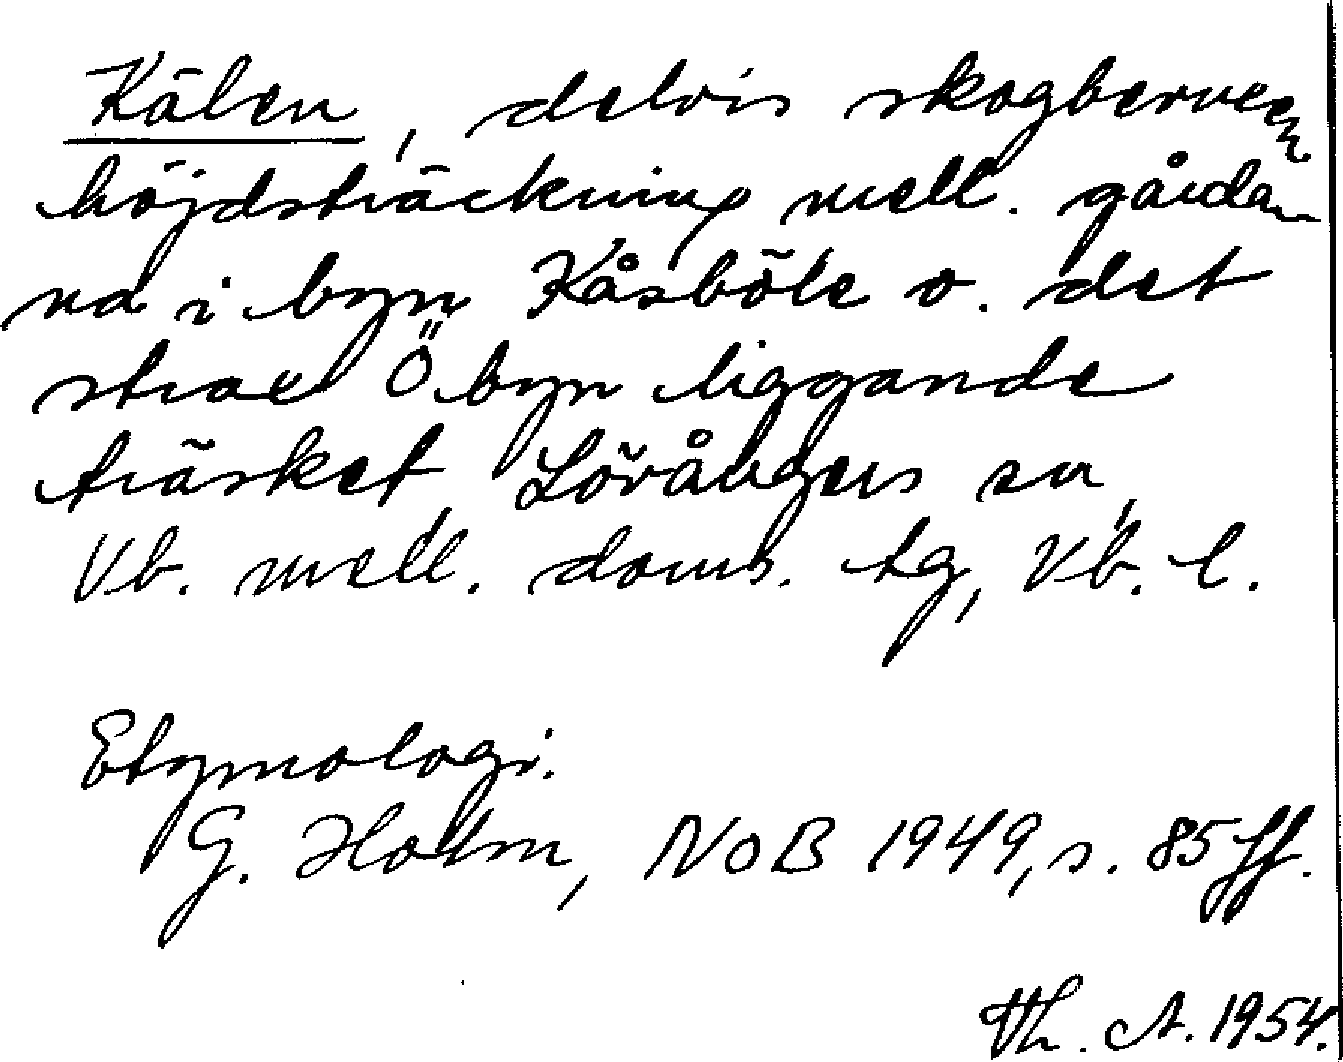 Kälen, delvis skogberveen
höjdsträckning mell. gårdar-
na i byn Kåsböle o. det
strax Ö byn liggande
träsket, Lövångers sn,
Vb. mell. doms. tg, Vb. l.
Etymologi.
G. Holm, NoB 1949, s. 85 ff.
Th. A. 1954.